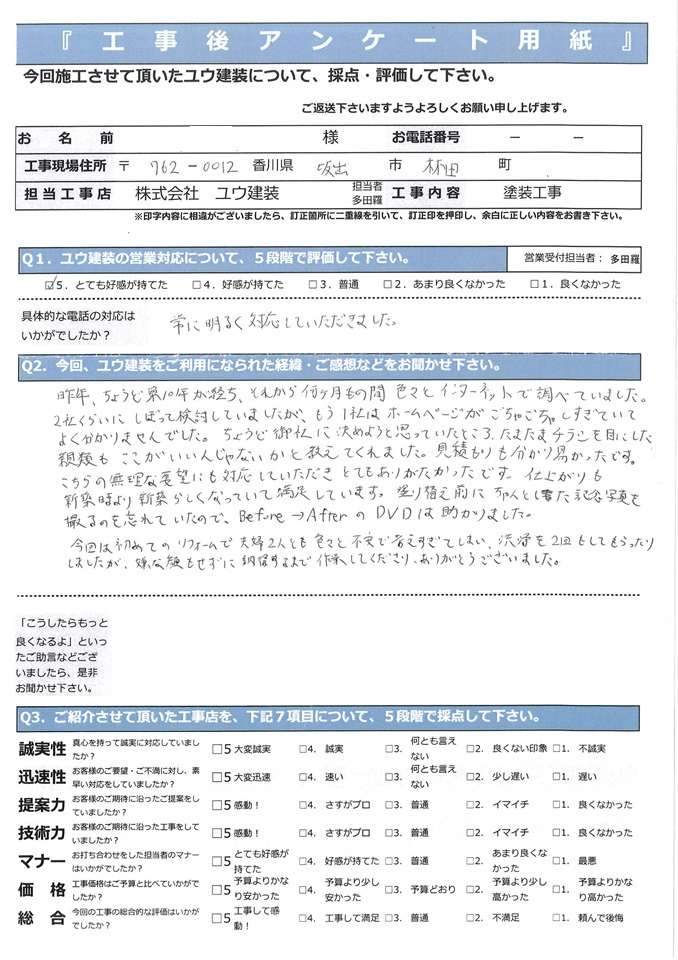 『工事後アンケート用紙』
今回施工させて頂いたユウ建装について、採点・評価して下さい。
ご返送下さいますようよろしくお願い申し上げます。
お名前 様 お電話番号 － －
工事現場住所 〒 762-0012 香川県 坂出 市 林田 町
担当工事店 株式会社 ユウ建装 担当者 多田羅 工事内容 塗装工事
※印字内容に相違がございましたら、訂正箇所に二重線を引いて、訂正印を押印し、余白に正しい内容をお書き下さい。
Q1．ユウ建装の営業対応について、５段階で評価して下さい。 営業受付担当者： 多田羅
☑5．とても好感が持てた □4．好感が持てた □3．普通 □2．あまり良くなかった □1．良くなかった
具体的な電話の対応は
いかがでしたか？
常に明るく対応していただきました。
Q2．今回、ユウ建装をご利用になられた経緯・ご感想などをお聞かせ下さい。
昨年、ちょうど築10年が経ち、それから何ヶ月もの間 色々とインターネットで調べていました。
2社くらいにしぼって検討していましたが、もう1社はホームページがごちゃごちゃしすぎていて
よく分かりませんでした。ちょうど御社に決めようと思っていたところ、たまたまチラシを目にした
親類も ここがいいんじゃないかと教えてくれました。見積もりも分かり易かったです。
こちらの無理な要望にも対応していただき とてもありがたかったです。仕上がりも
新築時より新築らしくなっていて満足しています。塗り替え前にちゃんとした記念写真を
撮るのを忘れていたので、Before→AfterのDVDは助かりました。
今回は初めてのリフォームで夫婦2人とも色々と不安で考えすぎてしまい、洗浄を2回もしてもらったり
しましたが、嫌な顔もせずに納得するまで作業してくださり、ありがとうございました。
「こうしたらもっと
良くなるよ」といっ
たご助言などござ
いましたら、是非
お聞かせ下さい。
Q3．ご紹介させて頂いた工事店を、下記７項目について、５段階で採点して下さい。
誠実性 真心を持って誠実に対応していましたか？ □5 大変誠実 □4．誠実 □3．何とも言えない □2．良くない印象 □1．不誠実
迅速性 お客様のご要望・ご不満に対し、素早い対応をしていましたか？ □5 大変迅速 □4．速い □3．何とも言えない □2．少し遅い □1．遅い
提案力 お客様のご期待に沿ったご提案をしていましたか？ □5 感動！ □4．さすがプロ □3．普通 □2．イマイチ □1．良くなかった
技術力 お客様のご期待に沿った工事をしていましたか？ □5 感動！ □4．さすがプロ □3．普通 □2．イマイチ □1．良くなかった
マナー お打ち合わせをした担当者のマナーはいかがでしたか？ □5 とても好感が持てた □4．好感が持てた □3．普通 □2．あまり良くなかった □1．最悪
価格 工事価格はご予算と比べていかがでしたか？ □5 予算よりかなり安かった □4．予算より少し安かった □3．予算どおり □2．予算より少し高かった □1．予算よりかなり高かった
総合 今回の工事の総合的な評価はいかがでしたか？ □5 工事して感動！ □4．工事して満足 □3．普通 □2．不満足 □1．頼んで後悔